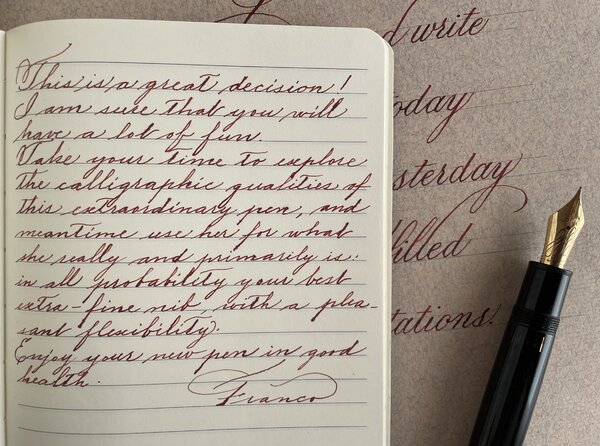 This is a great decision!
I am sure that you will
have a lot of fun.
Take your time to explore
the calligraphic qualities of
this extraordinary pen, and
meantime use her for what
she really and primarily is:
in all probability your best
extra-fine nib, with a plea-
sant flexibility.
Enjoy your new pen in good
health.
Franco
write
today
yesterday
filled
tations.